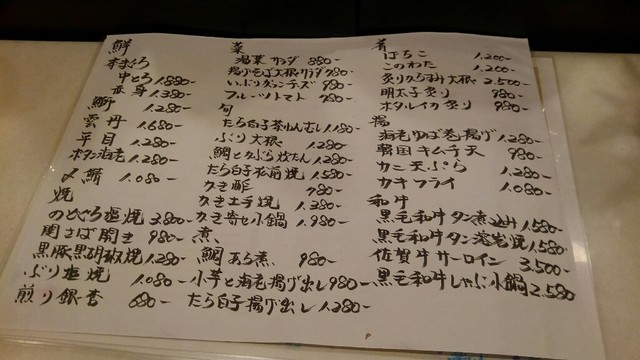 鮮
本まぐろ
中とろ 1.880-
赤身 1.380-
鰤 1.280-
雲丹 1.680-
平目 1.280-
ボタン海老 1.280-
〆鯖 1.080-
焼
のどぐろ塩焼 3.800-
関さば開き 980-
黒豚黒胡椒焼 1.280-
ぶり塩焼 1.080-
煎り銀杏 680-
菜
湯葉サラダ 880-
揚げそば大根サラダ 780-
いぶりガッコチーズ 980-
フルーツトマト 980-
旬
たら白子茶わんむし 1.180-
ぶり大根 1.280-
鯛とかぶら炊たん 1.280-
たら白子松前焼 1.580-
かき酢 980-
かき土手焼 1.380-
かき寄せ小鍋 1.980-
煮
鯛あら煮 980-
小芋と海老揚げ出し 980-
たら白子揚げ出し 1.280-
肴
ばちこ 1.200-
このわた 1.200-
炙りからすみ大根 2.500-
明太子炙り 980-
ホタルイカ炙り 980-
揚
海老ゆば巻揚げ 1.280-
韓国キムチ天 980-
カニ天ぷら 1.280-
カキフライ 1.080-
和牛
黒毛和牛タン煮込み 1.580-
黒毛和牛タン溶岩焼 1.580-
佐賀牛サーロイン 3.500-
黒毛和牛しゃぶ小鍋 2.580